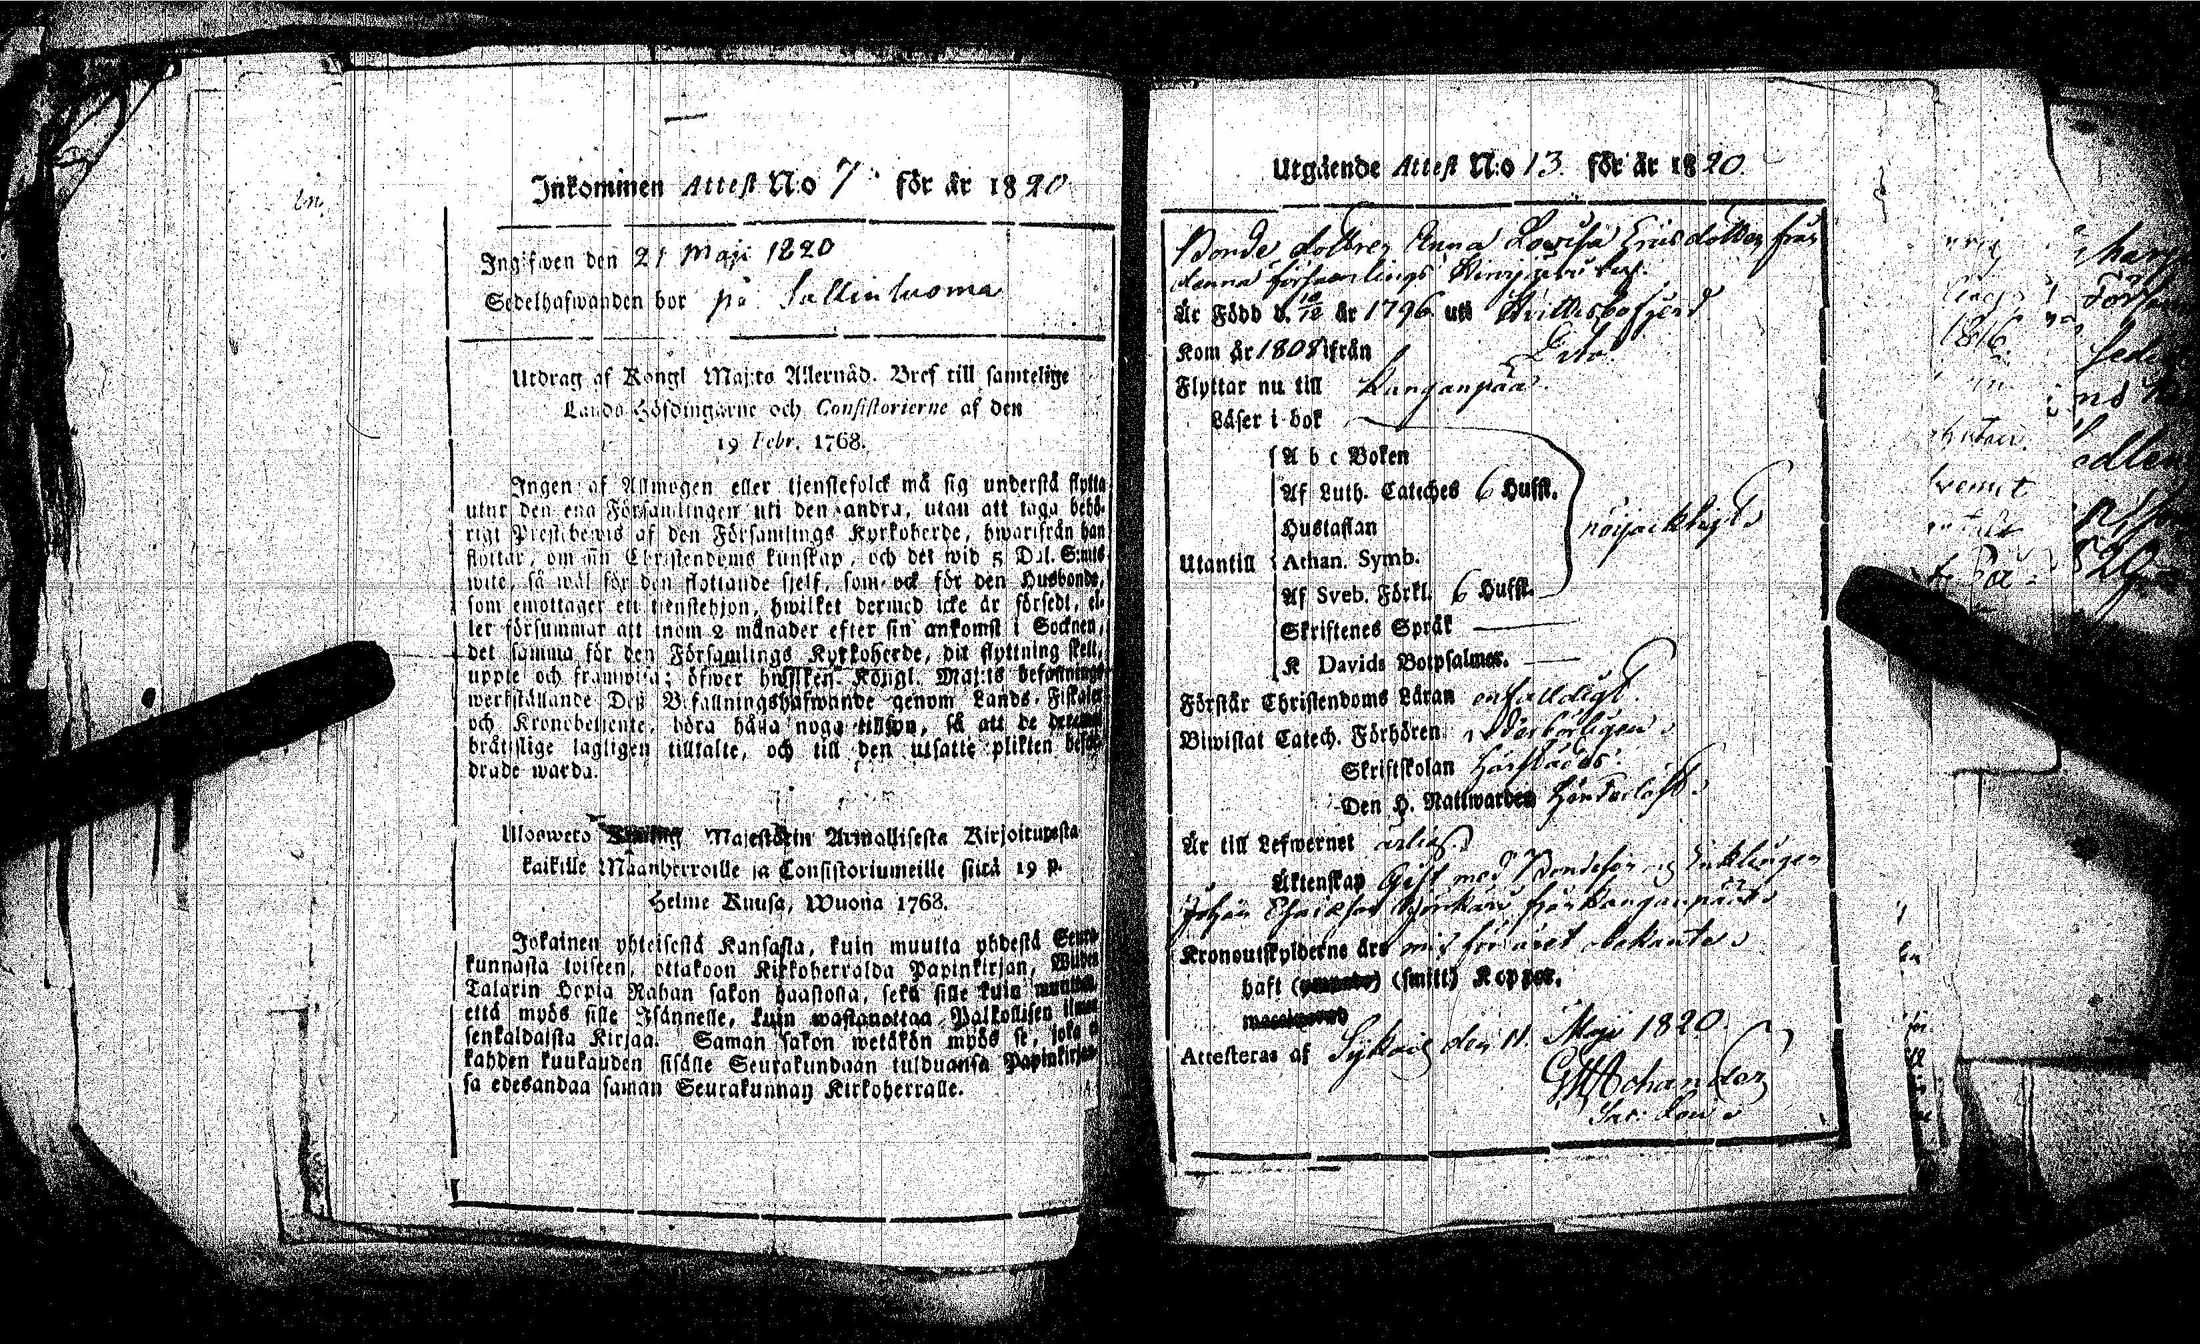 Inkommen Attest N:o 7 för år 1820
Ingifwen den 21 Maji 1820
Sedelhafwanden bor på Sallinluoma
Utdrag af Kongl Maj:ts Allernåd. Bref till samtelige
Lands Höfdingarne och Consistorierne af den
19 Febr. 1768.
Ingen af Allmogen eller tjenstefolck må sig understå flytta
utur den ena Församlingen uti den andra, utan att taga behö-
rigt Prestebewis af den Församlings Kyrkoherde, hwarifrån han
flyttar, om sin Christendoms kunskap, och det wid 5 Dal. S:mts
wite, så wäl för den flyttande sjelf, som ock för den Husbonde,
som emottager ett tjenstehjon, hwilket dermed icke är försedt, el-
ler försummar att inom 2 månader efter sin ankomst i Socknen,
det samma för den Församlings Kyrkoherde, dit flyttning skett,
uppte och framwisa; öfwer hwilken Kongl. Maj:ts befallnings
werkställande Deß Befallningshafwande genom Lands-Fiskaler
och Kronobetjente, böra hålla noga tillsyn, så att de
bråtslige lagligen tilltalte, och till den utsatte plikten beför-
drade warda.
Ulosweto Majestätin Armollisesta Kirjoituxesta
kaikille Maanherroille ja Consistoriumeille siitä 19 p.
Helme Kuusa, Wuona 1768.
Jokainen yhteisestä Kansasta, kuin muutta yhdestä Seura-
kunnasta toiseen, ottakoon Kirkoherralda Papinkirjan, Wiiden
Talarin Hopia Rahan sakon haastosta, sekä sille kuin muuttaa,
että myös sille Isännelle, kuin wastanottaa Palkollisen ilman
senkaldaista Kirjaa. Saman sakon wetäkön myös se, joka ei
kahden kuukauden sisälle Seurakundaan tulduansa Papinkirjan-
sa edesandaa saman Seurakunnan Kirkoherralle.
Utgående Attest N:o 13. för år 1820.
Bonde dottren Anna Lovisa Ericsdotter från
denna församlings
Är Född d. 10/12 år 1796 uti
Kom år 1808 ifrån Dito
Flyttar nu till Kanganpää
Läser i bok
A b c Boken
Af Luth. Cateches 6 Hufst.
Hustaflan
Utantill Athan. Symb.
nöijacktigt
Af Sveb. Förkl. 6 Hufst.
Skriftenes Språk
K Davids Botpsalmer.
Förstår Christendoms Läran enfalldigt.
Biwistat Catech. Förhören wederbörligen
Skriftskolan härstädes
Den H. Nattwarden
Är till Lefwernet ärlig
Äktenskap Gift med Bondeson Ynklingen
Johan från Kanganpää
Kronoutskylderne äro mig för året obekante
haft (smitt) Koppor.
Attesteras af den 11. Maji 1820.